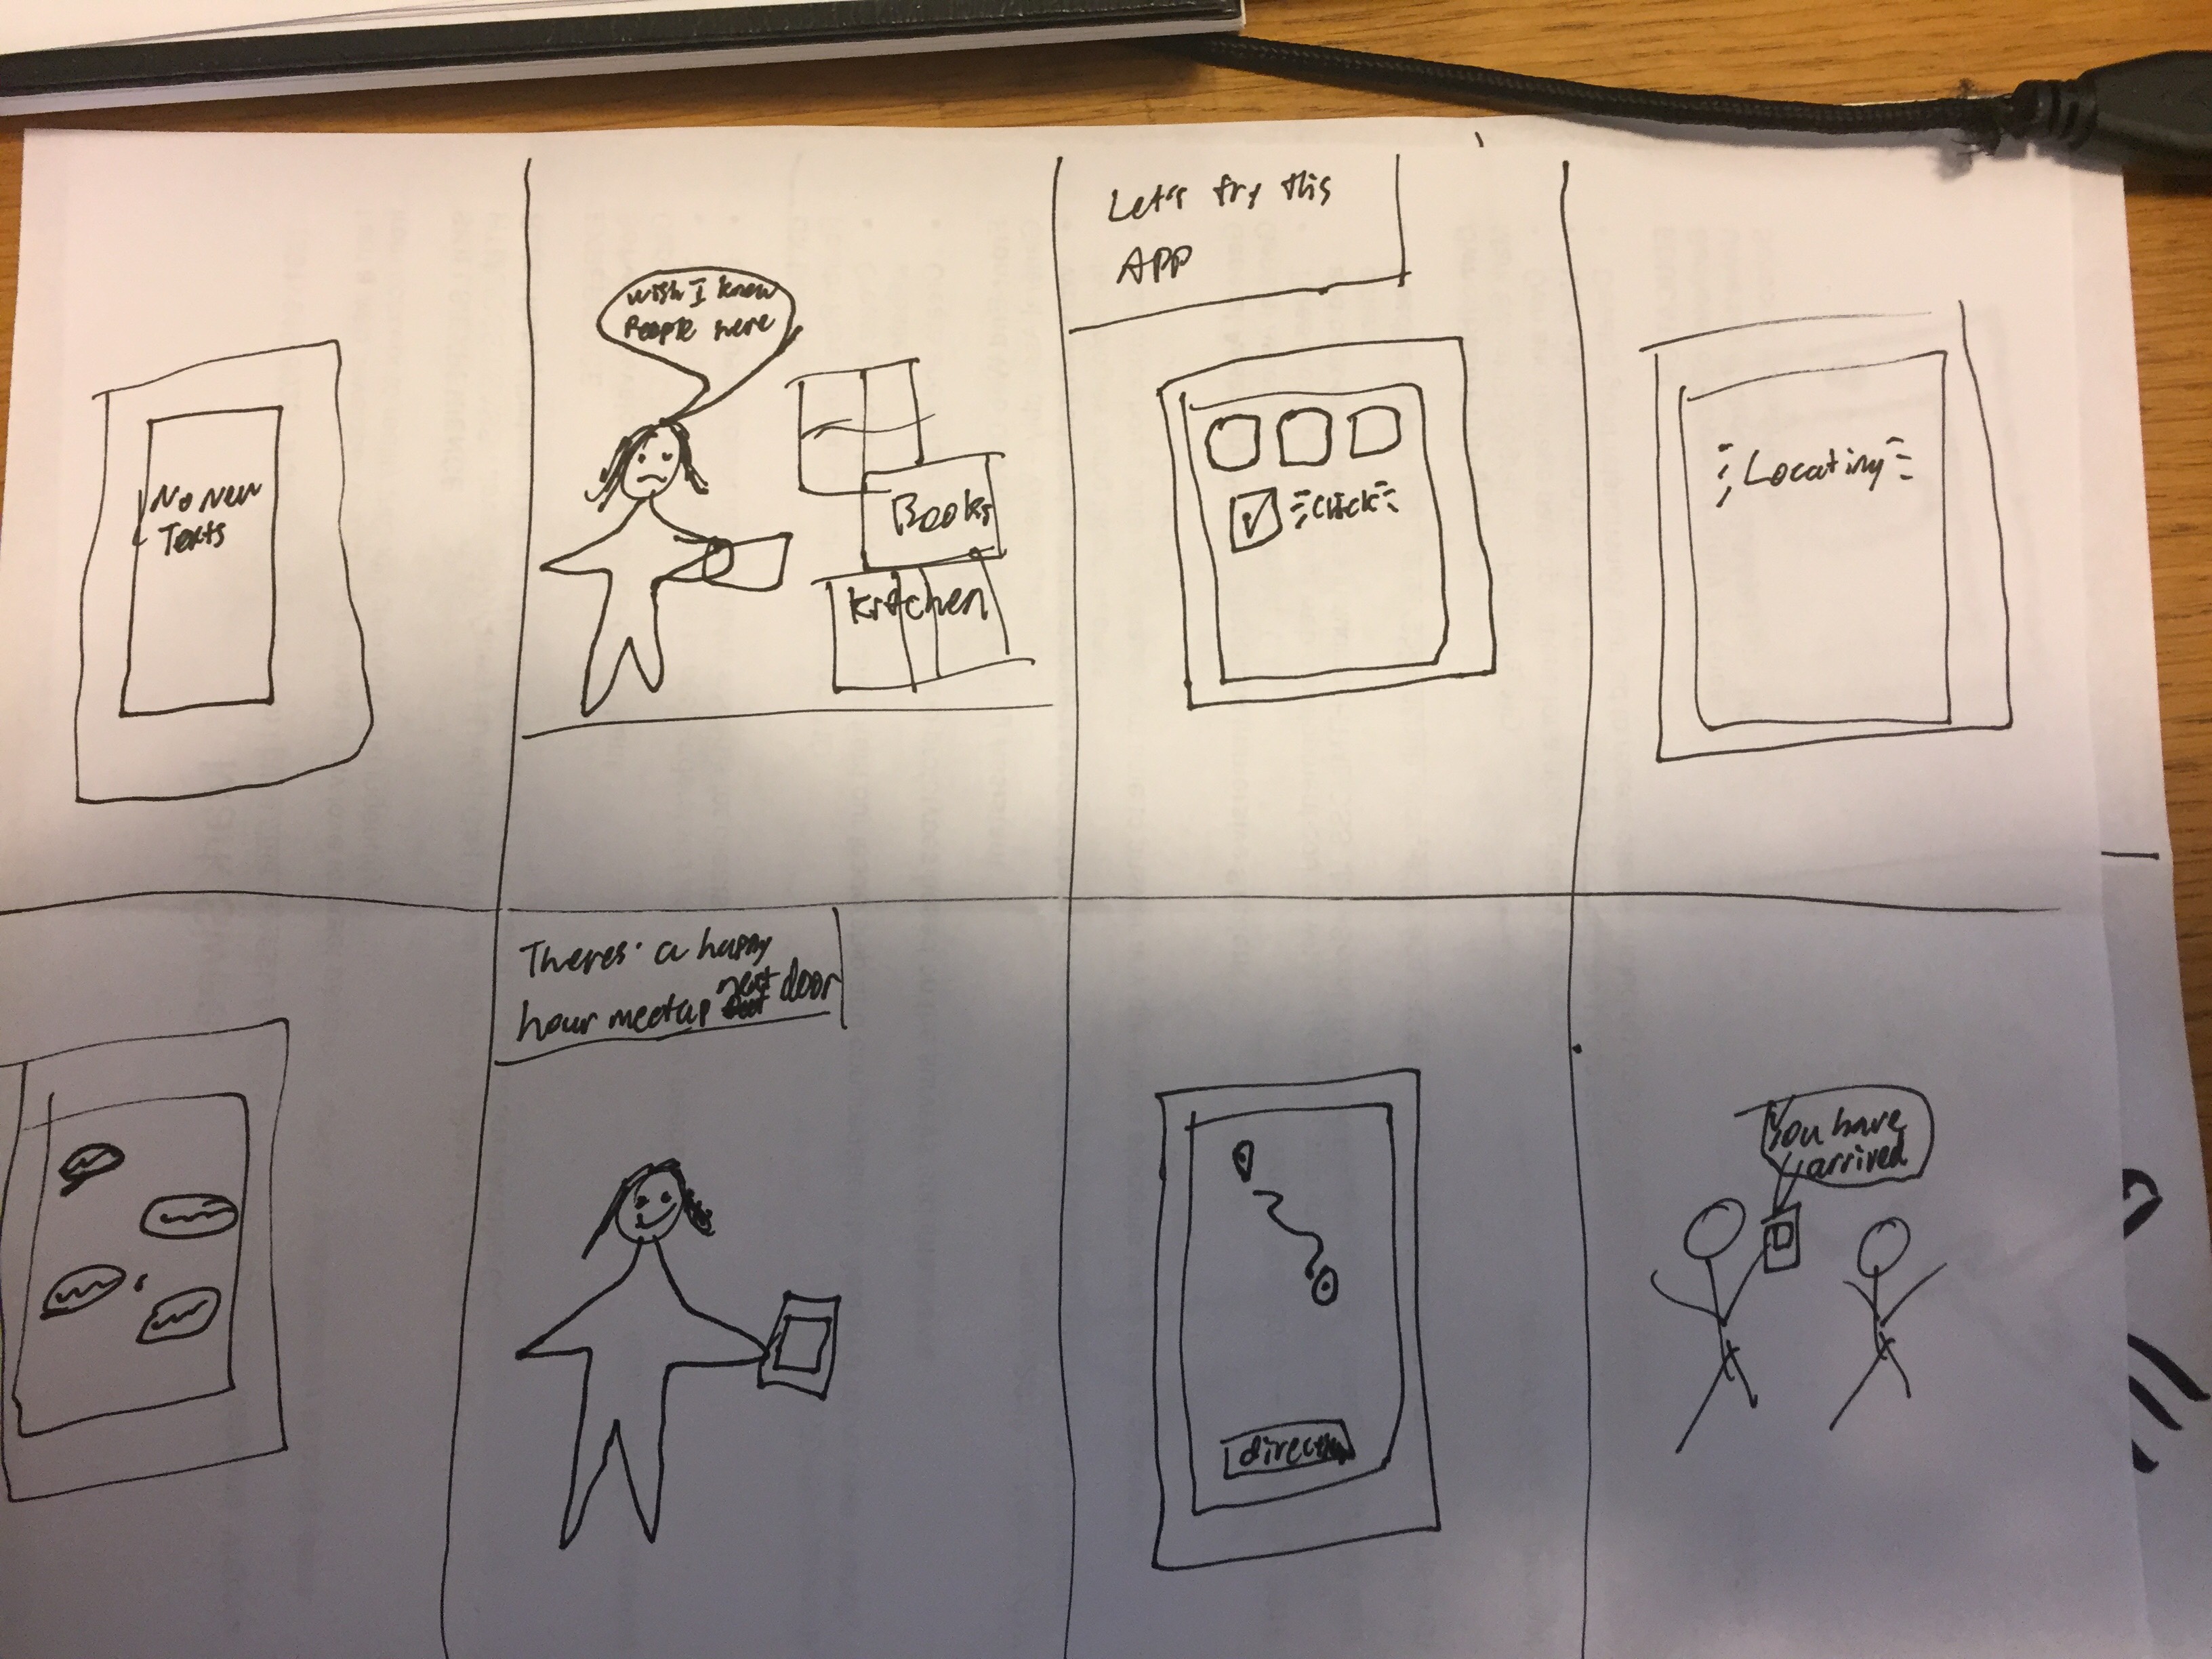 No New
Texts
Wish I knew
People here
Books
Kitchen
Let's try this
APP
CLICK
Locating
Theres' a happy
hour meetup next door
direction
You have
arrived